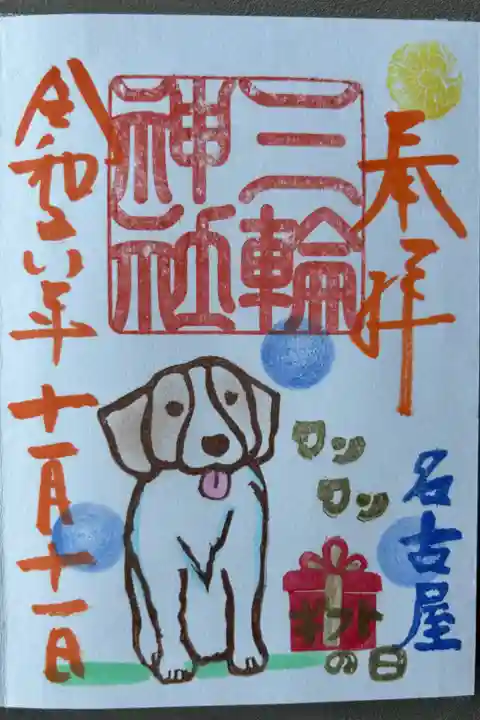 奉拝
三輪
神社
令和六年十一月十一日
名古屋
ワン
ワン
ギフト
の日